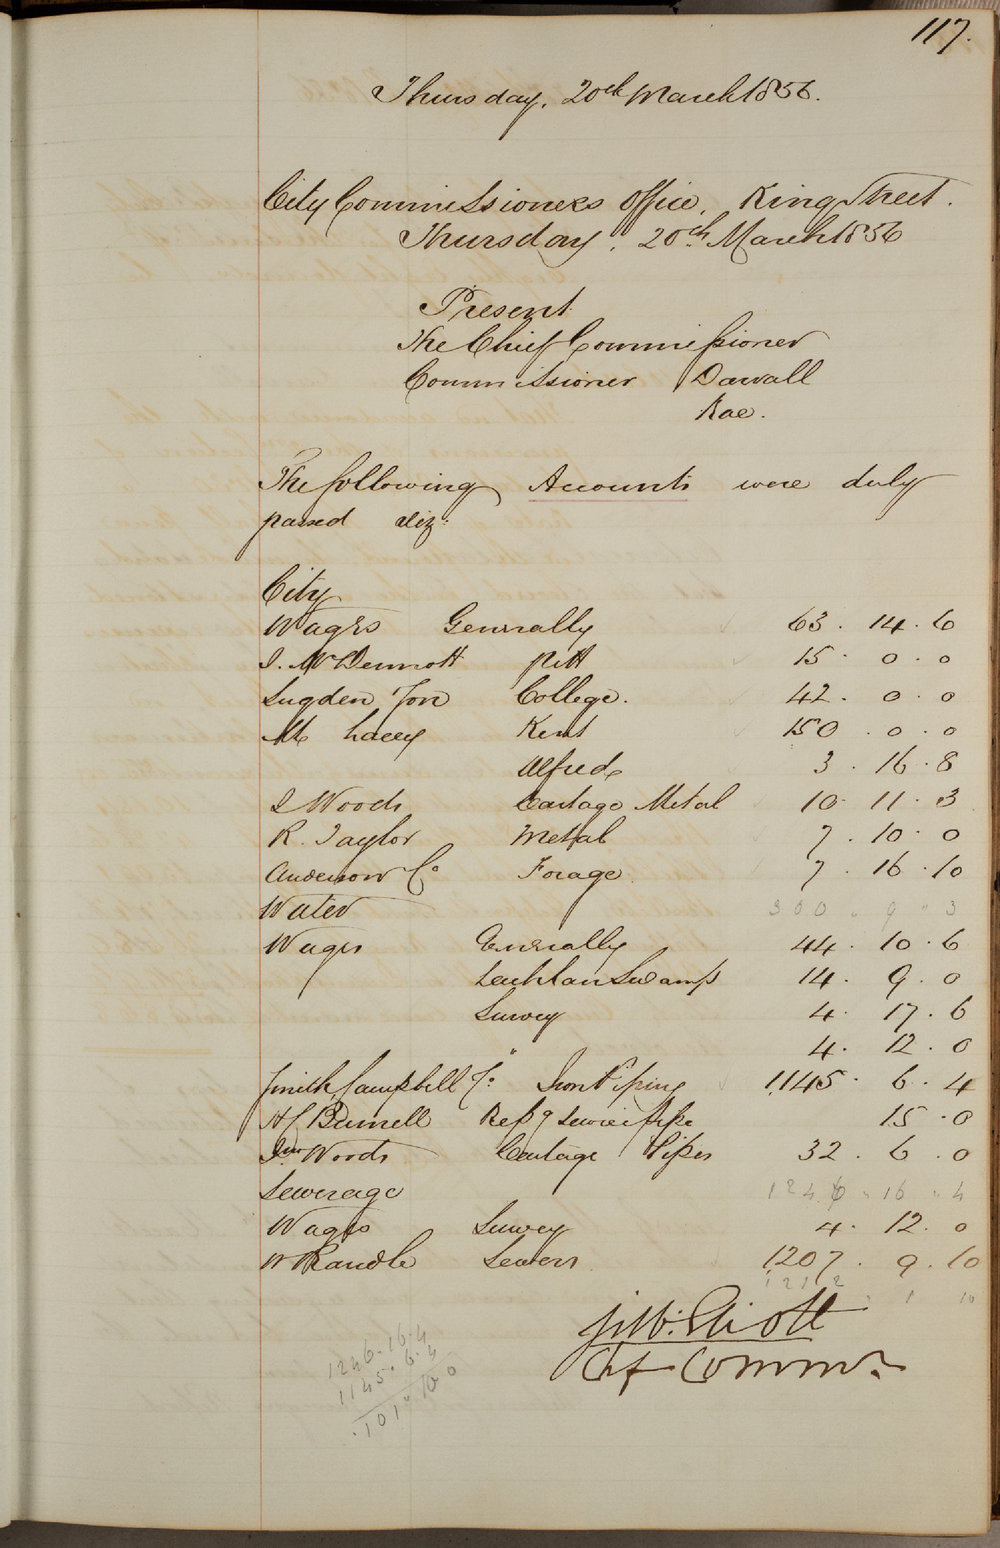 117.
Thursday, 20th March 1856.
City Commissioners Office, King Street.
Thursday, 20th March 1856
Present
The Chief Commissioner
Commissioner Darvall
Rae.
The following Accounts were duly
passed viz:
City
Wages Generally 63. 14. 6
J. McDermott Pitt 15. 0. 0
Sugden Jon College. 42. 0. 0
M Lacey Kent 150. 0. 0
Alfred 3. 16. 8
J Woods Cartage Metal 10. 11. 3
R. Taylor Metal 7. 10. 0
Anderson Co Forage 7. 16. 10
Water 300 " 9 " 3
Wages Generally 44. 10. 6
Lachlan Swamp 14. 9. 0
Survey 4. 17. 6
" 4. 12. 0
Smith Campbell Co Iron Piping 1145. 6. 4
H Burnell Repg Service pipe 15. 0
Jno Woods Cartage Pipes 32. 6. 0
Sewerage 1246 " 16 " 4
Wages Survey 4. 12. 0
W Randle Sewers 1207. 9. 10
1212 " 1 10
G. W. Eliott
Chf Commr.
1246. 16. 4
1145. 6. 4
101 " 10 0